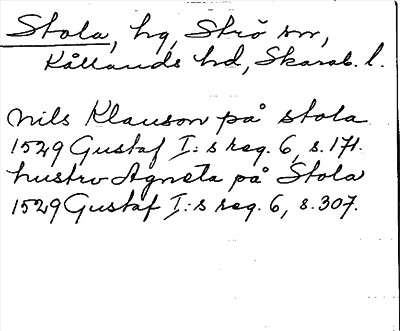 Stola, hg, Strö sn,
Kållands hd, Skarab. l.
Nils Klauson på Stola
1529 Gustaf I:s reg. 6, s. 171.
hustru Agneta på Stola
1529 Gustaf I:s reg. 6, s. 307.